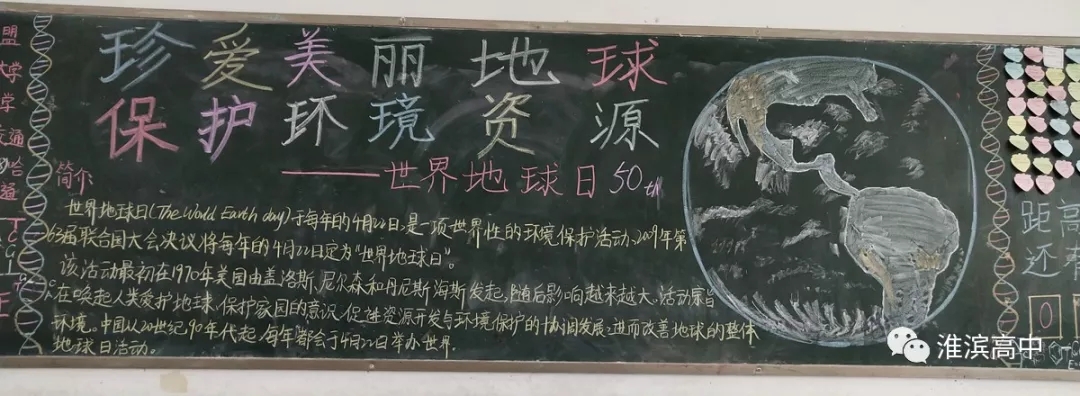 珍爱美丽地球
保护环境资源
——世界地球日50th
简介
世界地球日(The World Earth day)于每年的4月22日,是一项世界性的环境保护活动。2009年第
63届联合国大会决议将每年的4月22日定为“世界地球日”。
该活动最初在1970年美国由盖洛斯尼尔森和丹尼斯·海斯发起,随后影响越来越大。活动宗旨
在唤起人类爱护地球、保护家园的意识,促进资源开发与环境保护的协调发展,进而改善地球的整体
环境。中国从20世纪90年代起,每年都会于4月22日举办世界
地球日活动。
盟
大学
学
交通
距 高
还 有
0
淮滨高中